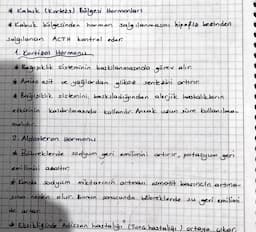 * Kabuk (Korteks) Bölgesi Hormonları
* Kabuk bölgesinden hormon salgılanmasını hipofiz bezinden
salgılanan ACTH kontrol eder.
1. Kortizol Hormonu
* Bağışıklık sisteminin baskılanmasında görev alır.
* Amino asit ve yağlardan glikoz sentezini artırır.
* Bağışıklık sistemini baskıladığından alerjik hastalıkların
etkisinin kaldırılmasında kullanılır. Ancak uzun süre kullanılmaz
2. Aldosteron Hormonu
* Böbreklerde sodyum geri emilimini artırır, potasyum geri
emilimini azaltır.
* Kanda sodyum miktarının artması osmotik basıncın artması
neden olur. Bunun sonucunda böbreklerde su geri emilimi
de artar.
* Eksikliğinde Addison hastalığı (Tunç hastalığı) ortaya çıkar.